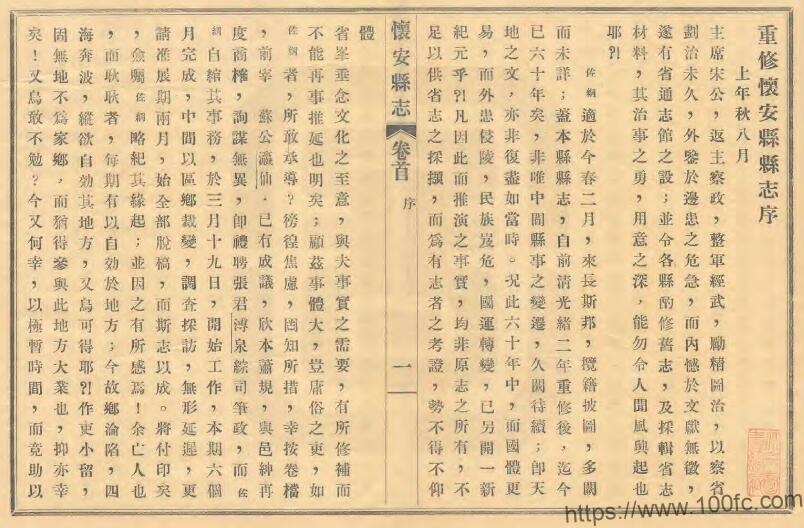 重修懷安縣縣志序
上年秋八月
主席宋公，返主察政，整軍經武，勵精圖治，以察省
劃治未久，外鑒於邊患之危急，而內憾於文獻無徵，
遂有省通志館之設；並令各縣酌修舊志，及採輯省志
材料，其治事之勇，用意之深，能勿令人聞風興起也
耶？！
佐綱適於今春二月，來長斯邦，攬籍披圖，多闕
而未詳；蓋本縣縣志，自前清光緒二年重修後，迄今
已六十年矣，非唯中間縣事之變遷，久闕待續；卽天
地之文，亦非復盡如當時。况此六十年中，而國體更
易，而外患侵陵，民族岌危，國運轉變，已另開一新
紀元乎？！凡因此而推演之事實，均非原志之所有，不
足以供省志之採擷，而爲有志者之考證，勢不得不仰
懷安縣志
卷首
序
一
體
省峯垂念文化之至意，與夫事實之需要，有所修補而
不能再事推延也明矣；顧茲事體大，豈庸俗之吏，如
佐綱者，所敢承導？徬徨焦慮，罔知所措，幸按卷檔
，前宰　蘇公瀛仙，已有成議，欣本蕭規，與邑紳再
度商榷，詢謀無異，卽禮聘張君溥泉綜司筆政，而佐
綱自綰其事務，於三月十九日，開始工作，本期六個
月完成，中間以區鄉裁變，調查採訪，無形延遲，更
請准展期兩月，始全部脫稿，而斯志以成。將付印矣
，僉囑佐綱略紀其緣起；並因之有所感焉！余亡人也
，而耿耿者，每期有以自効於地方；今故鄉淪陷，四
海奔波，縱欲自効其地方，又烏可得耶？！作吏小留，
固無地不爲家鄉，而猶得參與此地方大業也，抑亦幸
矣！又烏敢不勉？今又何幸，以極暫時間，而竟助以
https://www.100fc.com